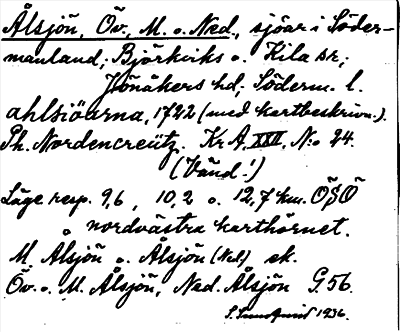 Ålsjön, Öv., M. o. Ned., sjöar i Söder-
manland; Björkviks o. Kila snr,
Jönåkers hd, Söderm. l.
ahlsiöarna, 1722 (med kartbeskrivn.).
Ph. Nordencreütz. Kr A, XXII, N:o 24.
(Vänd!)
Läge resp. 9,6, 10,2 o. 12,7 km. ÖSÖ
o nordvästra karthörnet.
M. Ålsjön o. Ålsjön (Ned) ek.
Öv. o. M. Ålsjön, Ned. Ålsjön G. 56.
1936.